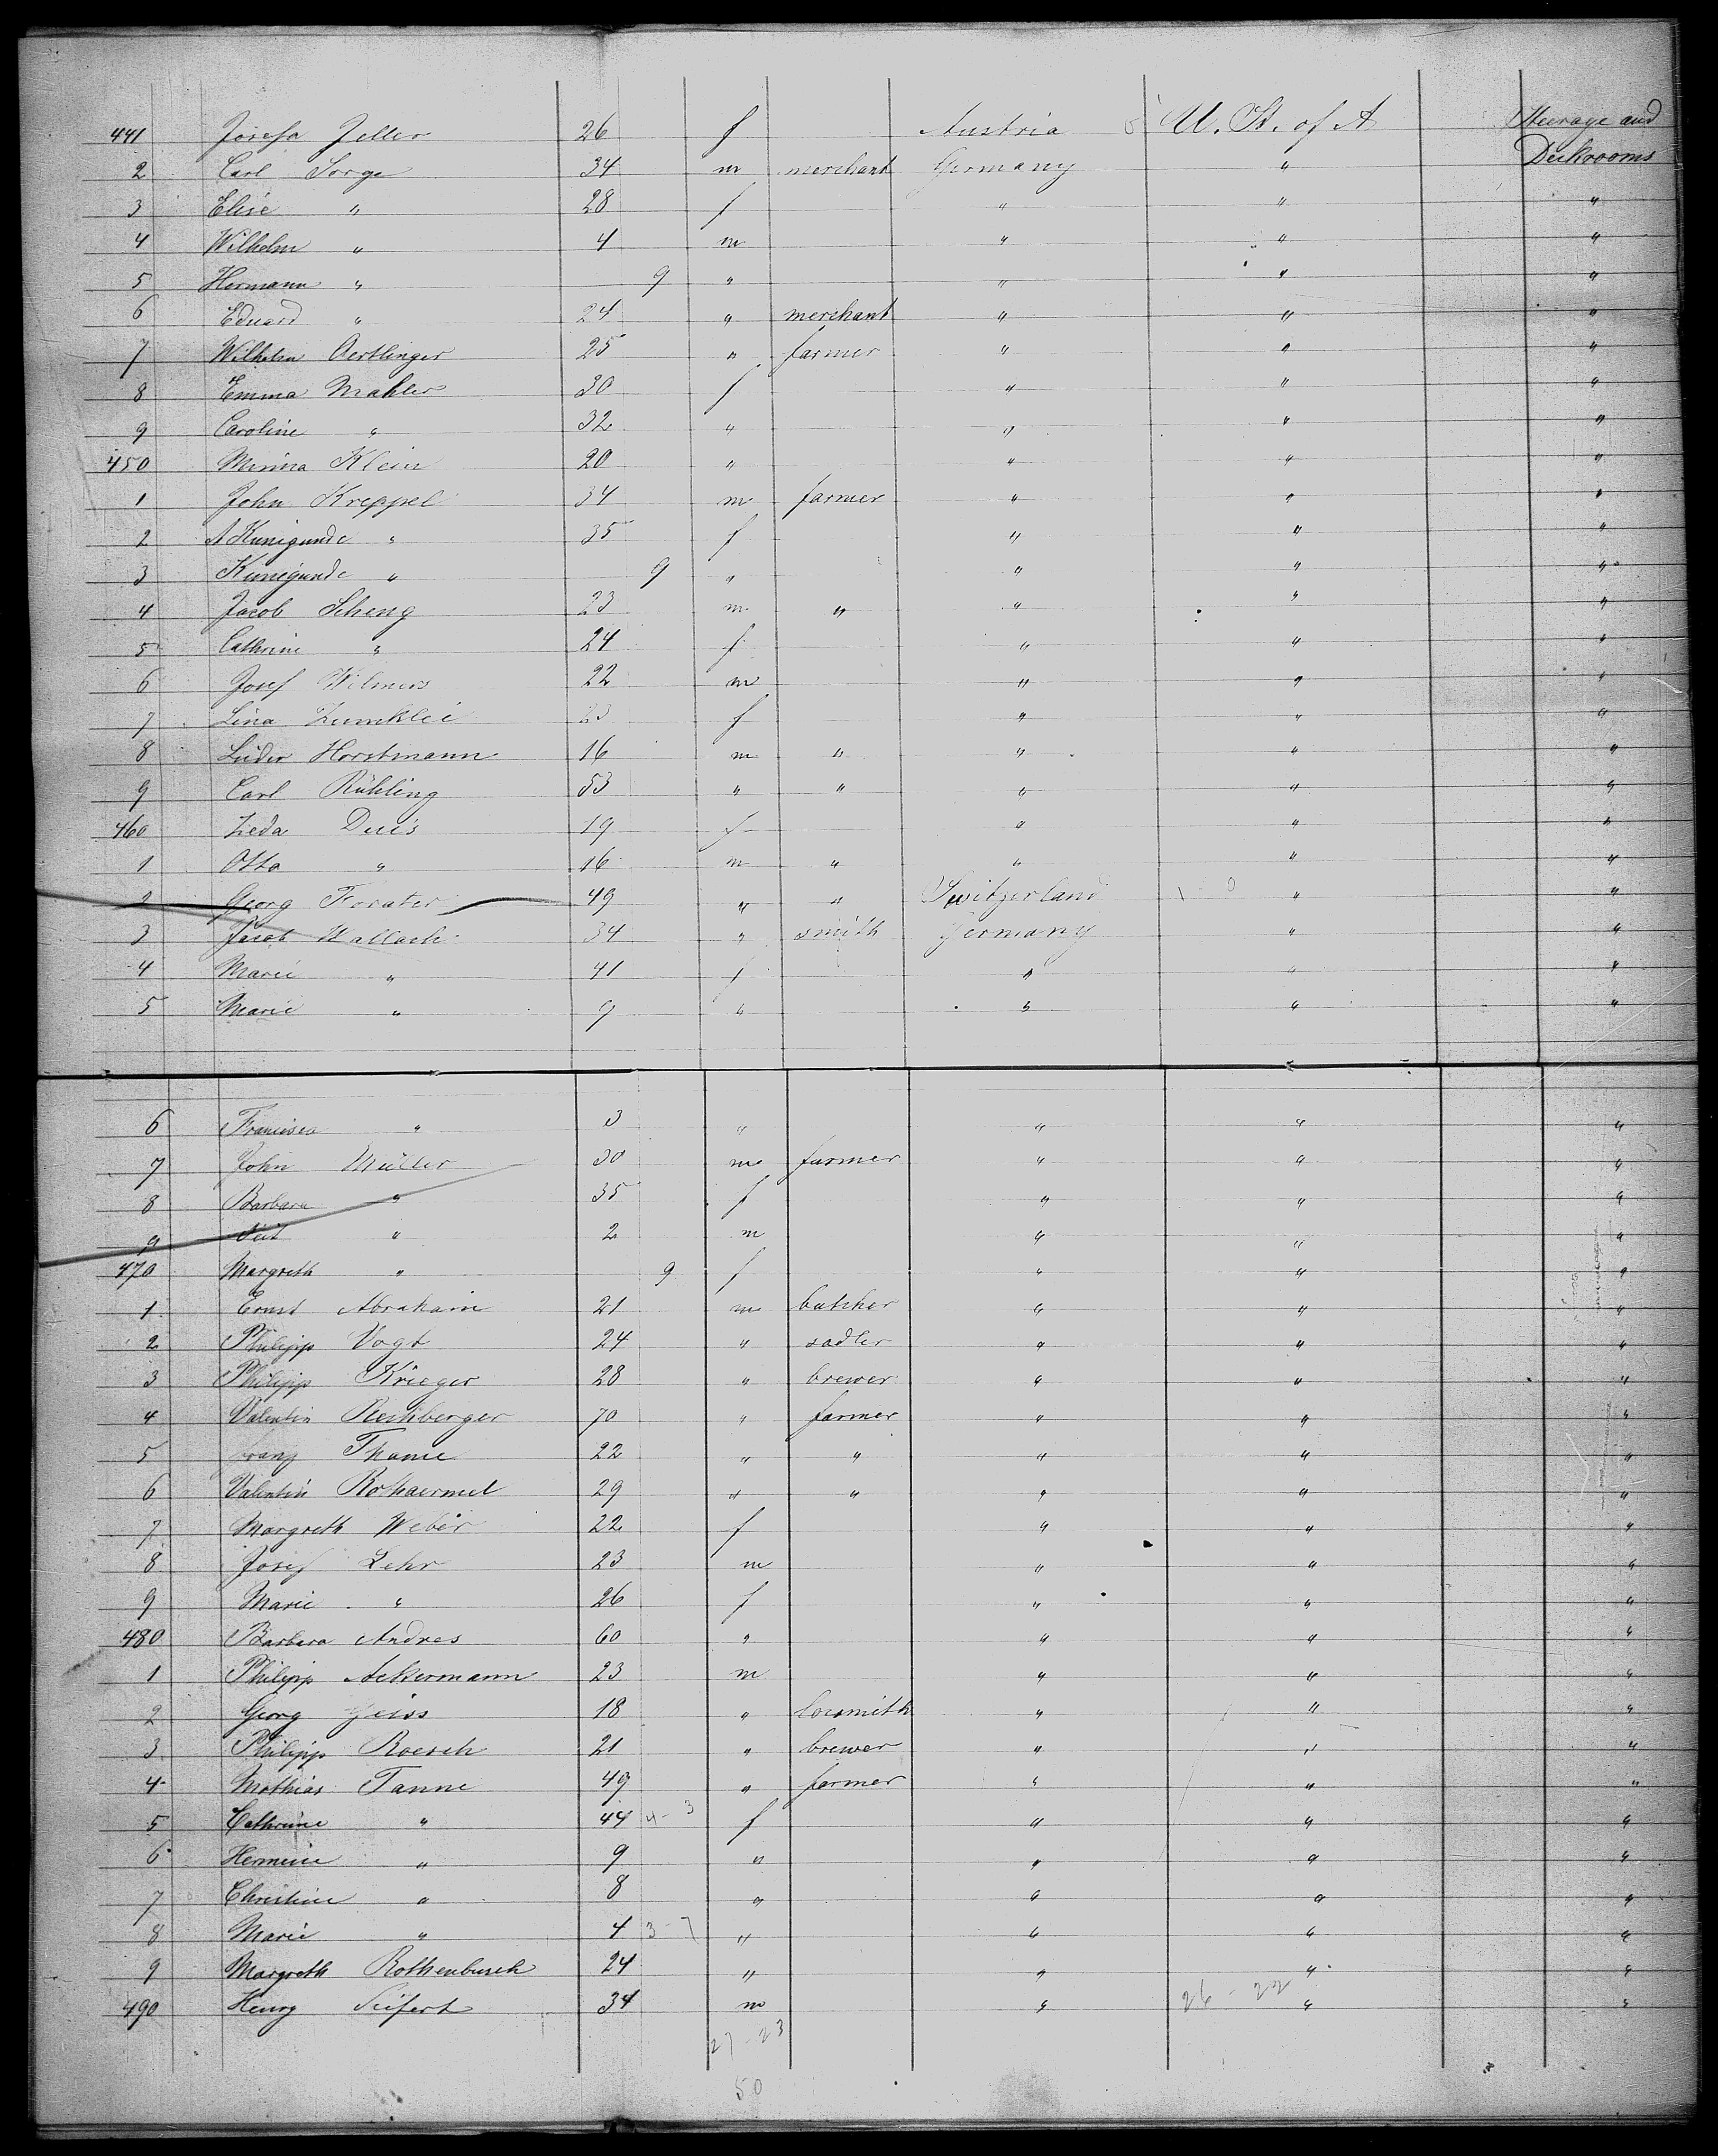 441 Josefa Zeller 26 f Austria U. St. of A Steerage and
2 Carl Sorge 34 m merchant Germany " Deckrooms
3 Elise " 28 f " " "
4 Wilhelm " 4 m " " "
5 Hermann " 9 " " " "
6 Eduard " 24 " merchant " " "
7 Wilhelm Oertlinger 25 " farmer " " "
8 Emma Mahler 30 f " " "
9 Caroline " 32 " " " "
450 Minna Klein 20 " " " "
1 John Kreppel 34 m farmer " " "
2 A Kunigunde " 35 f " " "
3 Kunigunde " 9 " " " "
4 Jacob Scheng 23 m " " " "
5 Cathrine " 24 f " " "
6 Josef Wilmers 22 m " " "
7 Lina 23 f " " "
8 Lüder Horstmann 16 m " " " "
9 Carl Rühling 53 " " " " "
460 Duis 19 f " " "
1 Otto " 16 m " " " "
2 Georg Forster 49 " " Switzerland 1 - 0 " "
3 Jacob Wallach 34 " smith Germany " "
4 Marie " 41 f " " "
5 Marie " 9 " " " "
6 Francisca " 3 " " " "
7 John Müller 30 m farmer " " "
8 Barbara " 35 f " " "
9 Veit " 2 m " " "
470 Margreth " 9 f " " "
1 Ernst Abraham 21 m butcher " " "
2 Philipp Vogt 24 " sadler " " "
3 Philipp Krieger 28 " brewer " " "
4 Valentin Reichberger 70 " farmer " " "
5 Franz Thome 22 " " " " "
6 Valentin Rothaermel 29 " " " " "
7 Margreth Weber 22 f " " "
8 Josef Lehr 23 m " " "
9 Marie " 26 f " " "
480 Barbara Andres 60 " " " "
1 Philipp Ackermann 23 m " " "
2 Georg Geiss 18 " locsmith " " "
3 Philipp Roesch 21 " brewer " " "
4 Mathias Tanne 49 " farmer " " "
5 Cathrine " 44 4-3 f " " "
6 Hermine " 9 " " " "
7 Christine " 8 " " " "
8 Marie " 4 3-7 " " " "
9 Margreth Rothenbusch 24 " " " "
490 Henry Seifert 34 m " 26 - 22 " "
27-23
50